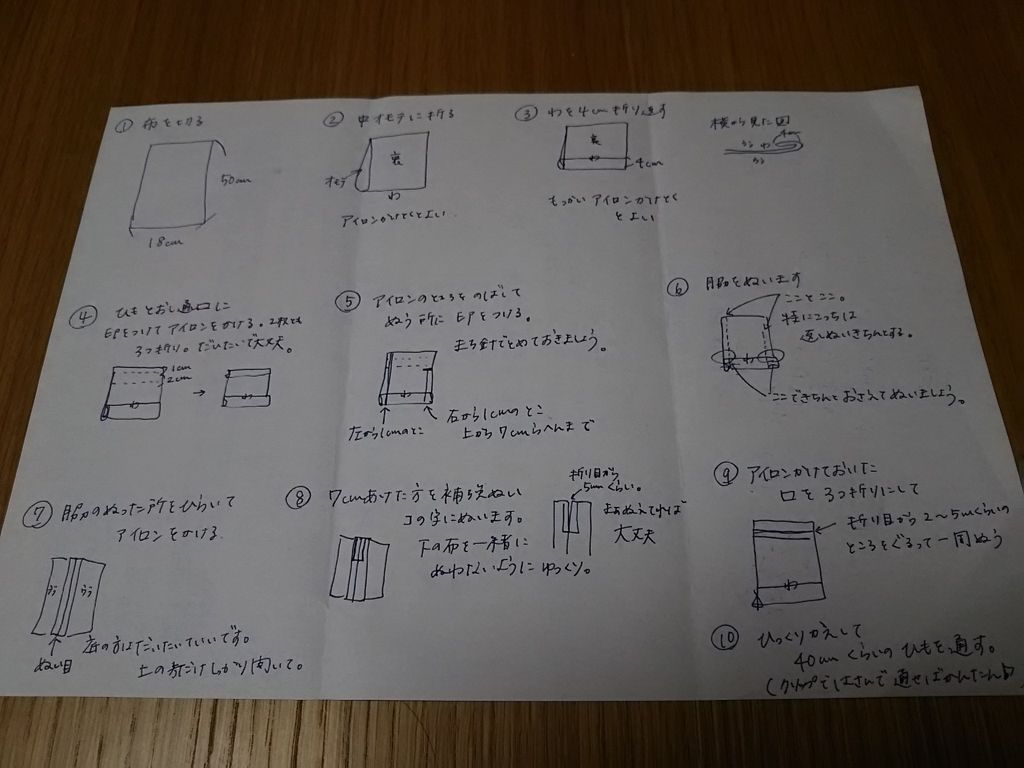 ① 布を切る
50cm
18cm
② 中オモテに折る
裏
オモテ
わ
アイロンかけとくとよい
③ わを4cm折り返す
裏
わ
4cm
もっかいアイロンかけとく
とよい
横から見た図
4cm
うら わ
うら
④ ひもとおし通口に
印をつけてアイロンをかける。2枚とも
3つ折り。だいたいで大丈夫。
1cm
2cm
わ
→
わ
⑤ アイロンのところをのばして
ぬう所に印をつける。
まち針でとめておきましょう。
わ
左から1cmのとこ
右から1cmのとこ
上から7cmらへんまで
⑥ 脇をぬいます
こことここ。
特にこっちは
返しぬいきちんとする。
わ
ここできちんとおさえてぬいましょう。
⑦ 脇のぬった所をひらいて
アイロンをかける
うら
うら
ぬい目
底の方はだいたいでいいです。
上の方だけしっかり開いて。
⑧ 7cmあけた方を補強ぬい
コの字にぬいます。
下の布を一緒に
ぬわないようにゆっくり。
折り目から
5mmくらい。
まぁぬえてれば
大丈夫
⑨ アイロンかけておいた
口を3つ折りにして
折り目から2〜5mmくらいの
ところをぐるって一周ぬう
わ
⑩ ひっくりかえして
40cmくらいのひもを通す。
(クリップではさんで通せばかんたん♪)